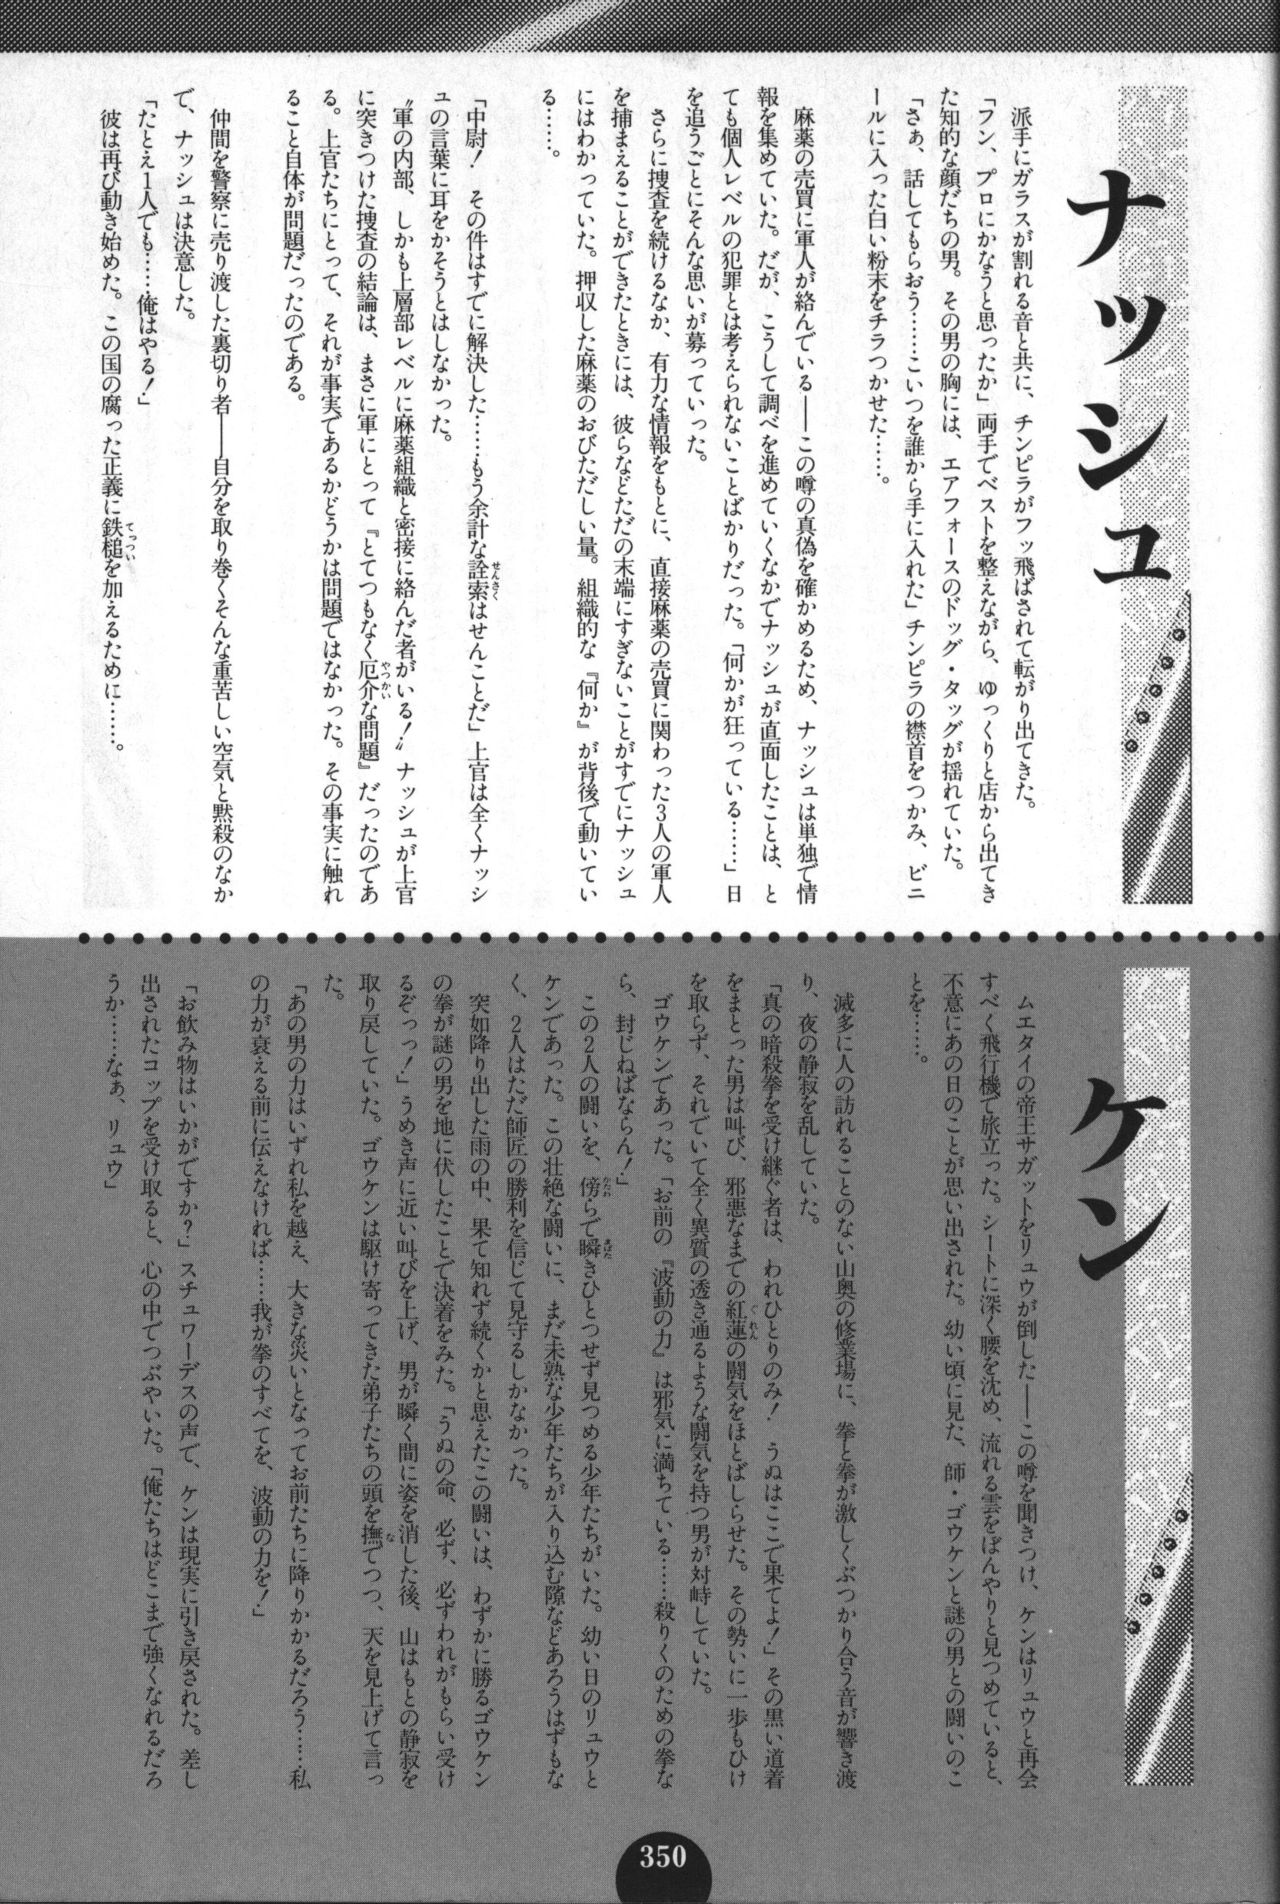 ナッシュ
　派手にガラスが割れる音と共に、チンピラがフッ飛ばされて転がり出てきた。
「フン、プロにかなうと思ったか」両手でベストを整えながら、ゆっくりと店から出てき
た知的な顔だちの男。その男の胸には、エアフォースのドッグ・タッグが揺れていた。
「さぁ、話してもらおう……こいつを誰から手に入れた」チンピラの襟首をつかみ、ビニ
ールに入った白い粉末をチラつかせた……。
　麻薬の売買に軍人が絡んでいる——この噂の真偽を確かめるため、ナッシュは単独で情
報を集めていた。だが、こうして調べを進めていくなかでナッシュが直面したことは、と
ても個人レベルの犯罪とは考えられないことばかりだった。「何かが狂っている……」日
を追うごとにそんな思いが募っていった。
　さらに捜査を続けるなか、有力な情報をもとに、直接麻薬の売買に関わった3人の軍人
を捕まえることができたときには、彼らなどただの末端にすぎないことがすでにナッシュ
にはわかっていた。押収した麻薬のおびただしい量。組織的な『何か』が背後で動いてい
る……。
「中尉！　その件はすでに解決した……もう余計な詮索はせんことだ」上官は全くナッシ
せんさく
ュの言葉に耳をかそうとはしなかった。
〝軍の内部、しかも上層部レベルに麻薬組織と密接に絡んだ者がいる！〟ナッシュが上官
に突きつけた捜査の結論は、まさに軍にとって『とてつもなく厄介な問題』だったのであ
やっかい
る。上官たちにとって、それが事実であるかどうかは問題ではなかった。その事実に触れ
ること自体が問題だったのである。
　仲間を警察に売り渡した裏切り者——自分を取り巻くそんな重苦しい空気と黙殺のなか
で、ナッシュは決意した。
「たとえ1人でも……俺はやる！」
　彼は再び動き始めた。この国の腐った正義に鉄槌を加えるために……。
てっつい
ケン
　ムエタイの帝王サガットをリュウが倒した——この噂を聞きつけ、ケンはリュウと再会
すべく飛行機で旅立った。シートに深く腰を沈め、流れる雲をぼんやりと見つめていると、
不意にあの日のことが思い出された。幼い頃に見た、師・ゴウケンと謎の男との闘いのこ
とを……。
　滅多に人の訪れることのない山奥の修業場に、拳と拳が激しくぶつかり合う音が響き渡
り、夜の静寂を乱していた。
「真の暗殺拳を受け継ぐ者は、われひとりのみ！　うぬはここで果てよ！」その黒い道着
をまとった男は叫び、邪悪なまでの紅蓮の闘気をほとばしらせた。その勢いに一歩もひけ
ぐれん
を取らず、それでいて全く異質の透き通るような闘気を持つ男が対峙していた。
　ゴウケンであった。「お前の『波動の力』は邪気に満ちている……殺りくのための拳な
ら、封じねばならん！」
　この2人の闘いを、傍らで瞬きひとつせず見つめる少年たちがいた。幼い日のリュウと
かたわ
まばた
ケンであった。この壮絶な闘いに、まだ未熟な少年たちが入り込む隙などあろうはずもな
く、2人はただ師匠の勝利を信じて見守るしかなかった。
　突如降り出した雨の中、果て知れず続くかと思えたこの闘いは、わずかに勝るゴウケン
の拳が謎の男を地に伏したことで決着をみた。「うぬの命、必ず、必ずわれがもらい受け
るぞっっ！」うめき声に近い叫びを上げ、男が瞬く間に姿を消した後、山はもとの静寂を
取り戻していた。ゴウケンは駆け寄ってきた弟子たちの頭を撫でつつ、天を見上げて言っ
な
た。
「あの男の力はいずれ私を越え、大きな災いとなってお前たちに降りかかるだろう……私
の力が衰える前に伝えなければ……我が拳のすべてを、波動の力を！」
「お飲み物はいかがですか？」スチュワーデスの声で、ケンは現実に引き戻された。差し
出されたコップを受け取ると、心の中でつぶやいた。「俺たちはどこまで強くなれるだろ
うか……なぁ、リュウ」
350